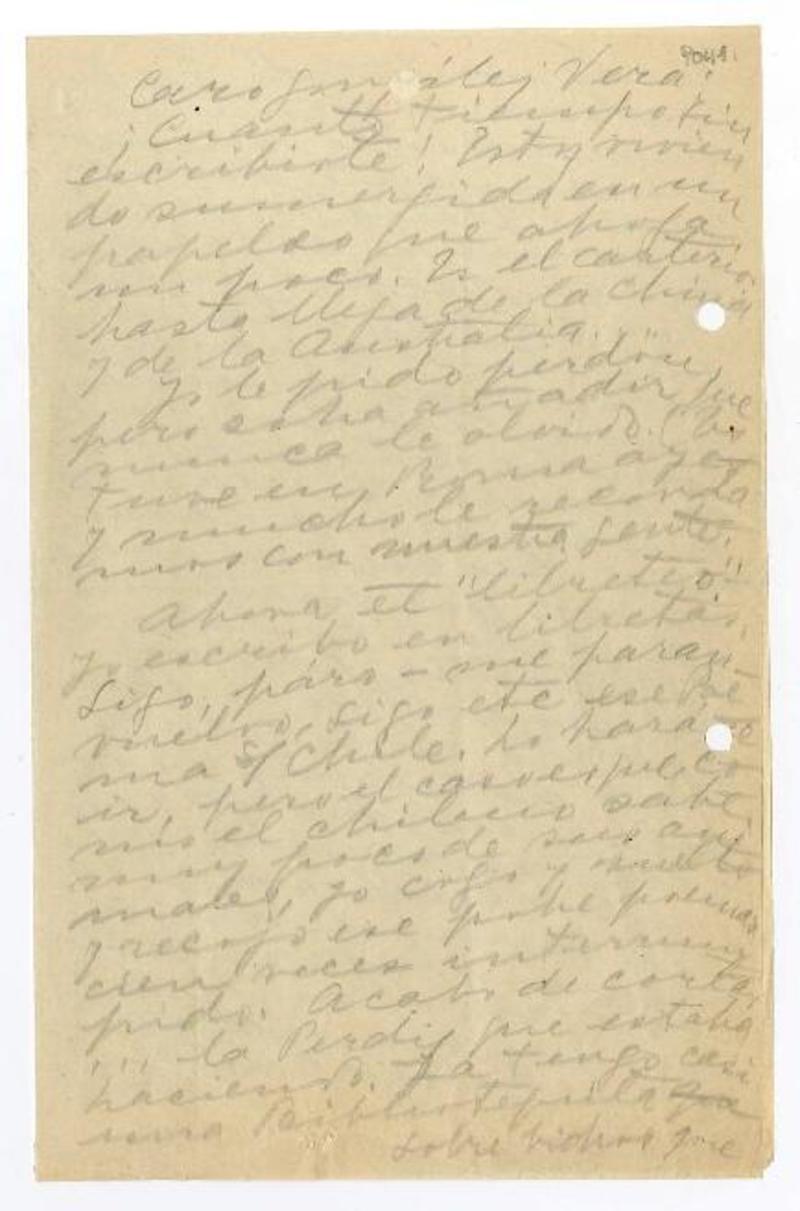 Caro González Vera:
¡Cuánto tiempo sin
escribirte! Estoy vivien
do sumergida en un
papeleo que ahoga
un poco. Es el carterío,
hasta llega de la China
y de la Australia...
Yo le pido perdón,
pero sé añadir que
nunca le olvido. (Es
tuve en Roma ayer
y mucho le recorda
mos con nuestra gente.
Ahora et "libreteo".
Yo escribo en libretas,
Sigo, páro - me paran -
vuelvo, sigo etc ese Poe
ma s/ Chile. Lo hará
ir, pero el caso es que, co
mo el chileno sabe
muy poco de sus ani
males, yo cojo y suelto
y recojo ese pobre poema
cien veces interrum
pido. Acabo de cortar
... la Perdiz que estaba
haciendo. Ya tengo casi
una Bibliotequita
sobre bichos que